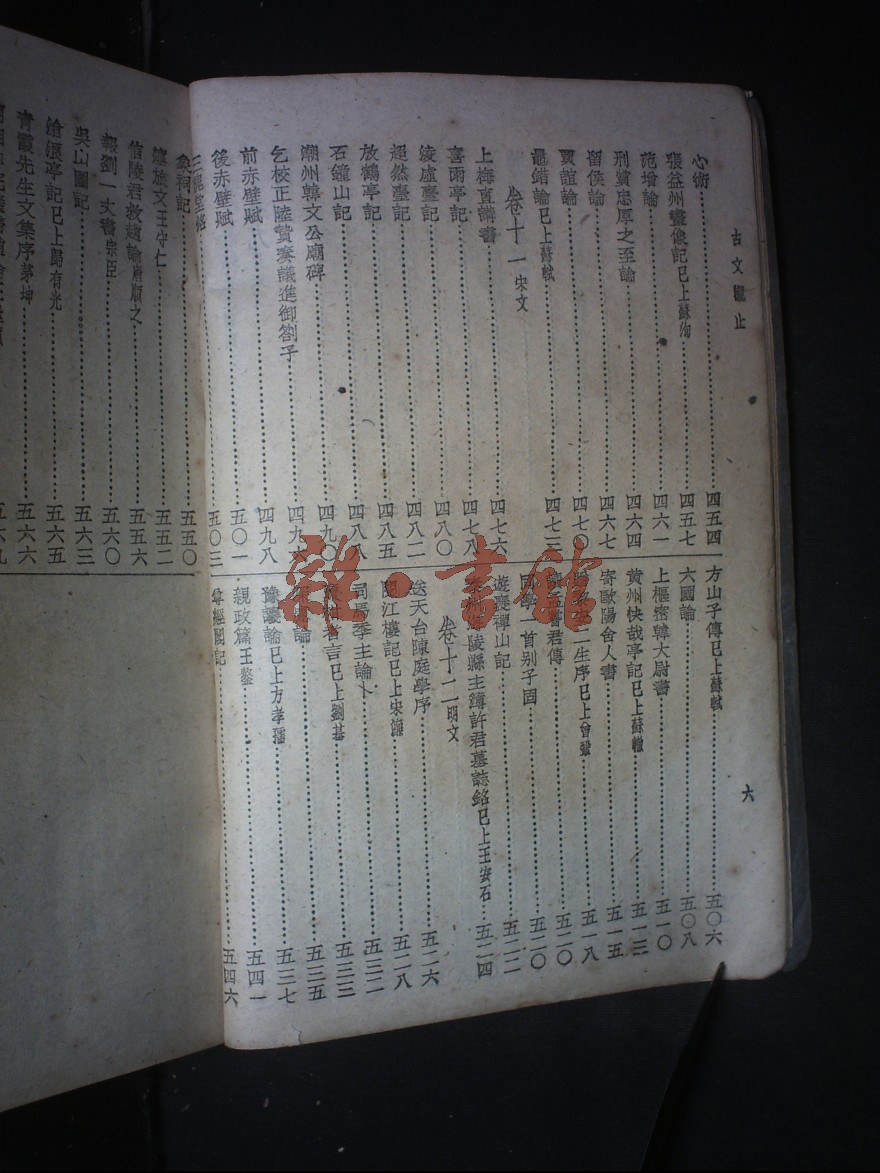 古文觀止
六
心術 四五四
張益州畫像記已上蘇洵 四五七
范增論 四六一
刑賞忠厚之至論 四六四
留侯論 四六七
賈誼論 四七〇
鼂錯論已上蘇軾 四七三
卷十一宋文
上梅直講書 四七六
喜雨亭記 四七八
凌虛臺記 四八〇
超然臺記 四八二
放鶴亭記 四八五
石鐘山記 四八八
潮州韓文公廟碑 四九〇
乞校正陸贄奏議進御劄子 四九六
前赤壁賦 四九八
後赤壁賦 五〇一
三槐堂銘 五〇三
方山子傳已上蘇軾 五〇六
六國論 五〇八
上樞密韓大尉書 五一〇
黃州快哉亭記已上蘇轍 五一三
寄歐陽舍人書 五一五
二生序已上曾鞏 五一八
孟嘗君傳 五二〇
同學一首別子固 五二〇
遊褒禪山記 五二二
陵縣主簿許君墓誌銘已上王安石 五二四
卷十二明文
送天台陳庭學序 五二六
閱江樓記已上宋濂 五二八
司馬季主論卜 五三二
者言已上劉基 五三三
論 五三五
豫讓論已上方孝孺 五三七
親政篇王鏊 五四一
尊經閣記 五四六
象祠記 五五〇
瘞旅文王守仁 五五二
信陵君救趙論唐順之 五五六
報劉一丈書宗臣 五六〇
吳山圖記 五六三
滄浪亭記已上歸有光 五六五
青霞先生文集序茅坤 五六六
五六九
雜·書館